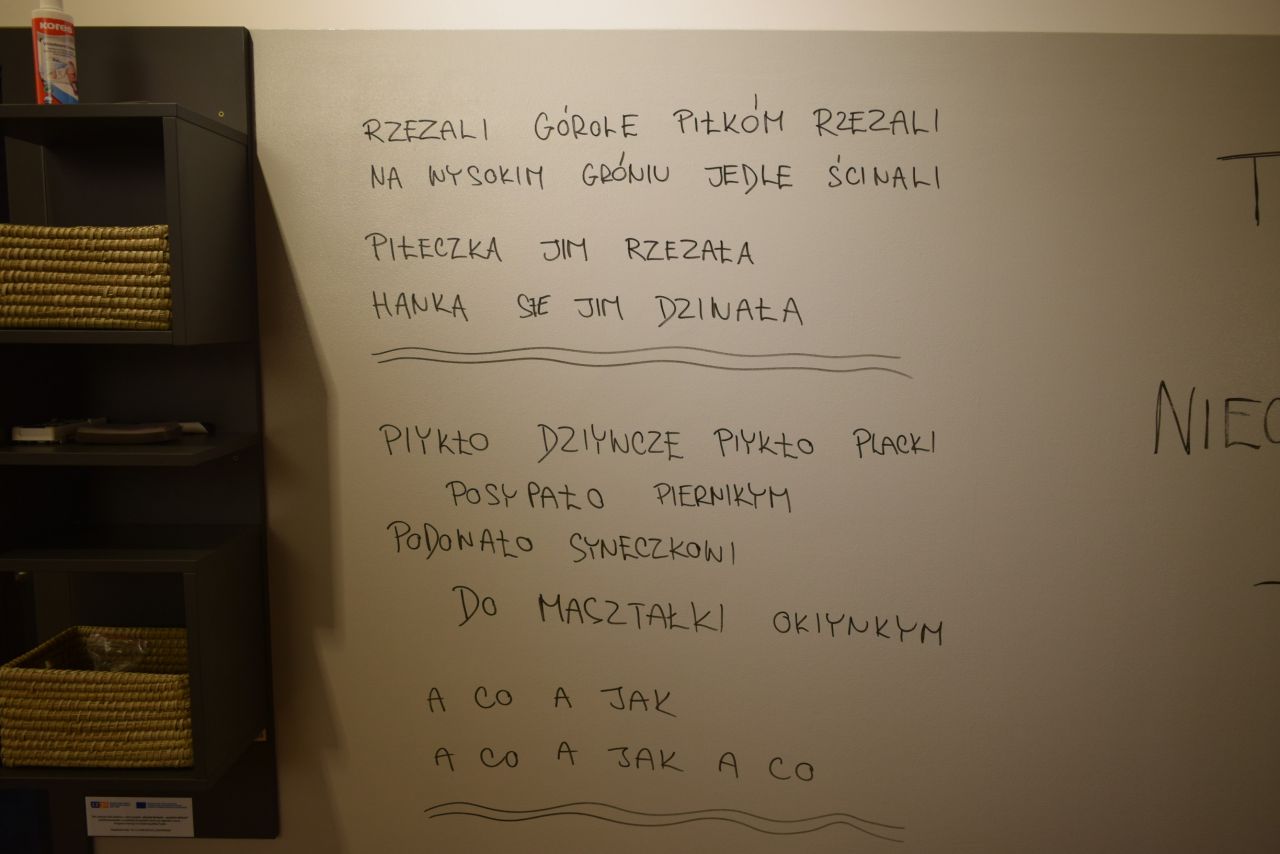 kores
RZEZALI GÓROLE PIŁKÓM RZEZALI
NA WYSOKIM GRÓNIU JEDLE ŚCINALI
PIŁECZKA JIM RZEZAŁA
HANKA SIE JIM DZINAŁA
PIYKŁO DZIYWCZĘ PIYKŁO PLACKI
POSYPAŁO PIERNIKYM
PODOWAŁO SYNECZKOWI
DO MASZTAŁKI OKIYNKYM
A CO A JAK
A CO A JAK A CO
T
NIEC